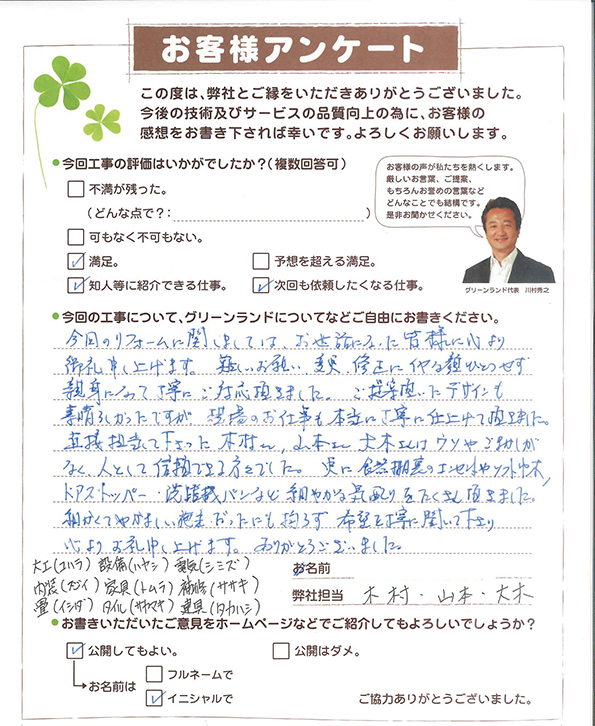 お客様アンケート
この度は、弊社とご縁をいただきありがとうございました。
今後の技術及びサービスの品質向上の為に、お客様の
感想をお書き下されば幸いです。よろしくお願いします。
●今回工事の評価はいかがでしたか?(複数回答可)
□不満が残った。
(どんな点で?: )
□可もなく不可もない。
☑満足。 □予想を超える満足。
☑知人等に紹介できる仕事。 ☑次回も依頼したくなる仕事。
お客様の声が私たちを熱くします。
厳しいお言葉、ご提案、
もちろんお誉めの言葉など
どんなことでも結構です。
是非お聞かせください。
グリーンランド代表 川村秀之
●今回の工事について、グリーンランドについてなどご自由にお書きください。
今回のリフォームに関しましては、お世話になった皆様に心より
御礼申し上げます。難しいお願い 変更・修正にイヤな顔ひとつせず
親身になって丁寧にご対応頂きました。ご提案頂いたデザインも
素晴らしかったですが 現場のお仕事も本当に丁寧に仕上げて頂きました。
直接担当して下さった 木村さん、山本さん 大木さんはウソやごまかしが
なく、人として信頼できる方々でした。更に 食器棚裏のコンセントやソフト巾木、
ドアストッパー・洗濯機パンなど 細やかな気配りをたくさん頂きました。
細かくてやかましい施主だったにも拘らず 希望を丁寧に聞いて下さり
心よりお礼申し上げます。ありがとうございました。
大工(コハラ) 設備(ハヤシ) 電気(シミズ)
内装(オジイ) 家具(トムラ) 補修(ササキ)
畳(イシダ) タイル(サヤマキ) 建具(タカハシ)
お名前
弊社担当 木村・山本・大木
●お書きいただいたご意見をホームページなどでご紹介してもよろしいでしょうか?
☑公開してもよい。 □公開はダメ。
お名前は □フルネームで
☑イニシャルで
ご協力ありがとうございました。